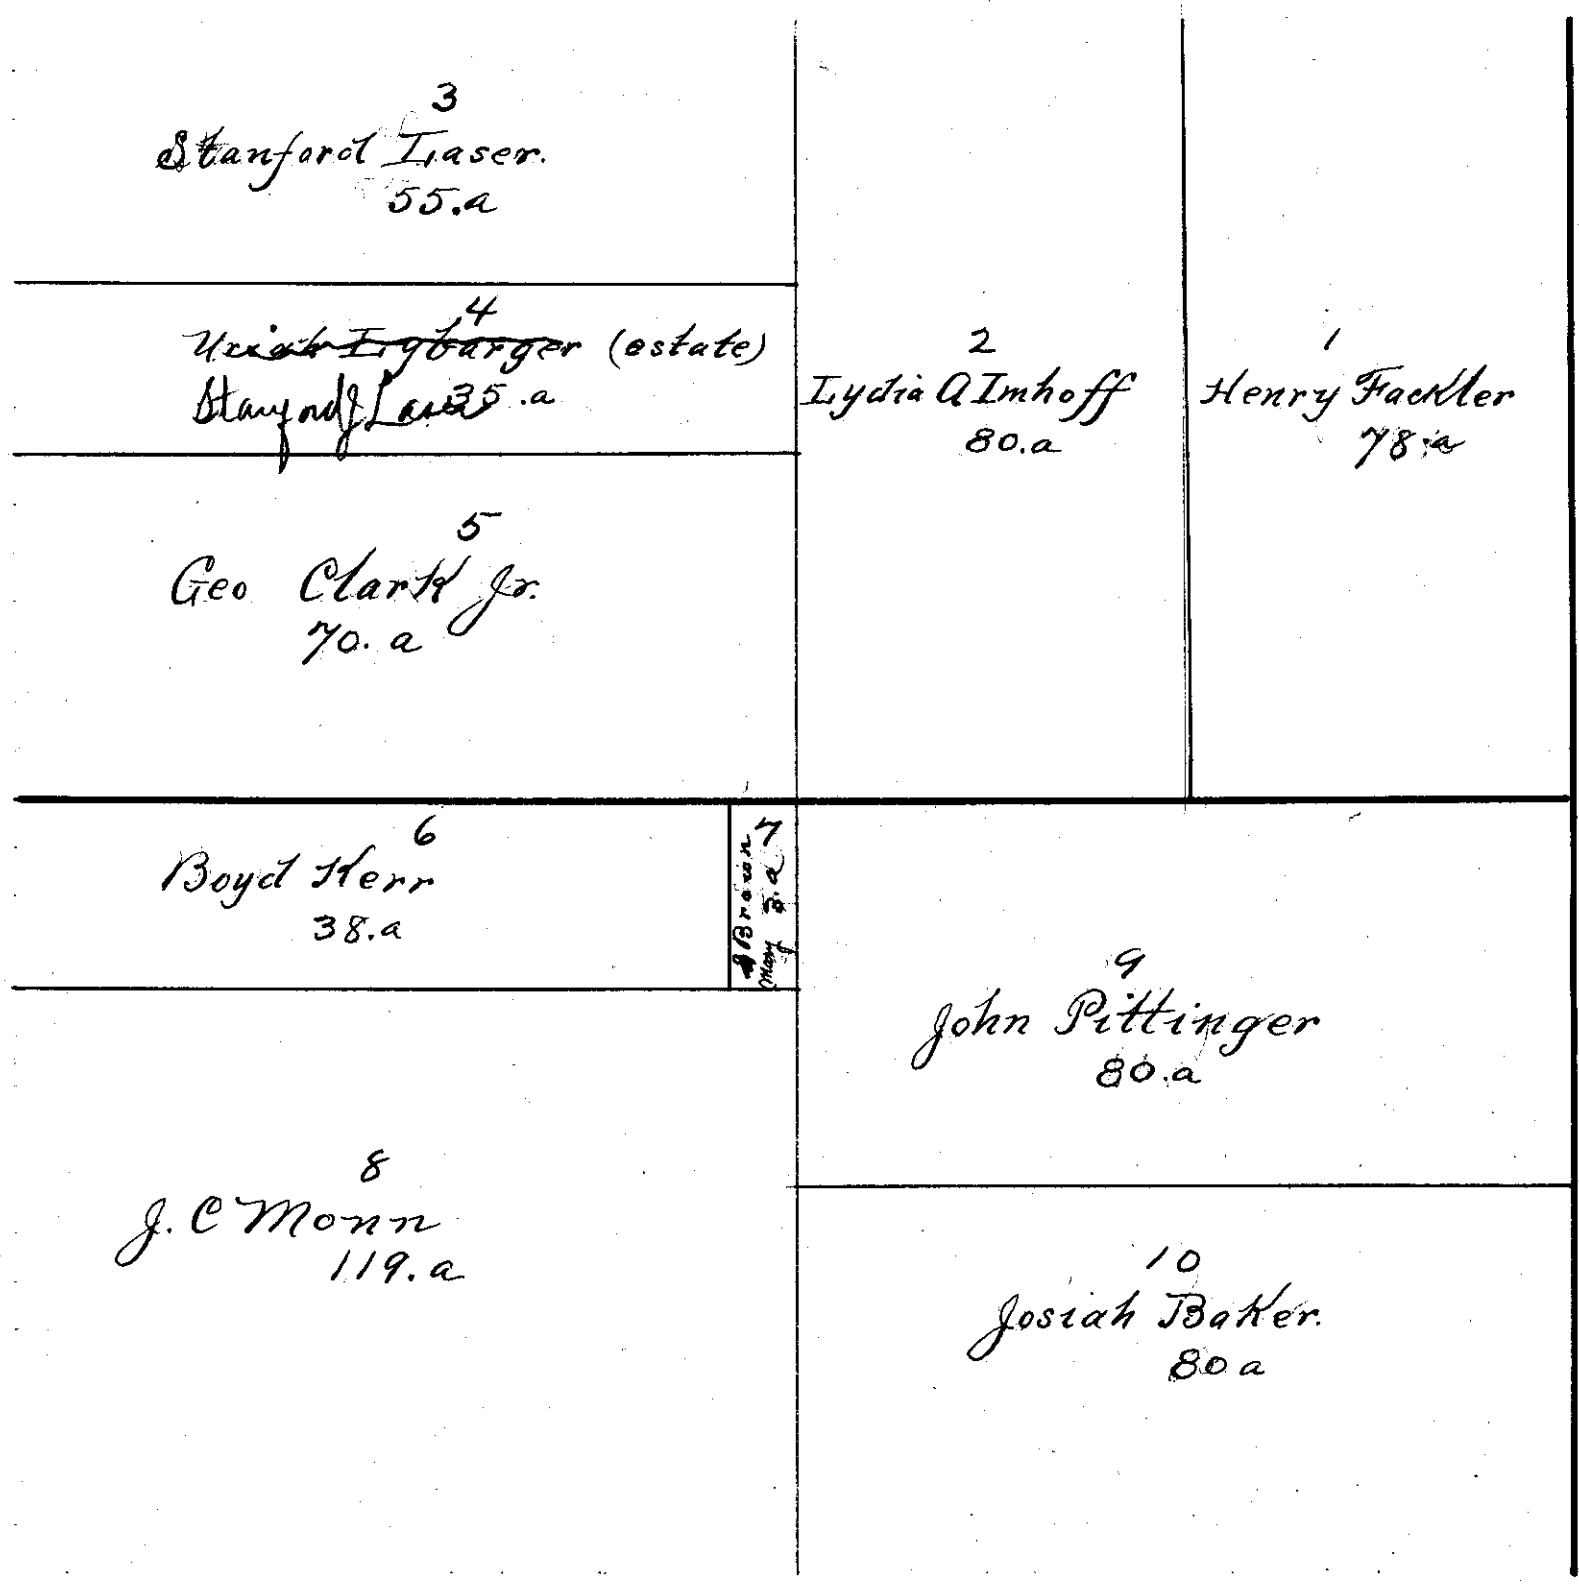 3
Stanford Laser.
55.a
4
Uriah Lybarger (estate)
Stanford J Laser 35.a
5
Geo Clark Jr.
70. a
2
Lydia A Imhoff
80.a
1
Henry Fackler
78.a
6
Boyd Kerr
38.a
7
Brown
Mary 3.a
8
J. C Monn
119.a
9
John Pittinger
80.a
10
Josiah Baker.
80 a